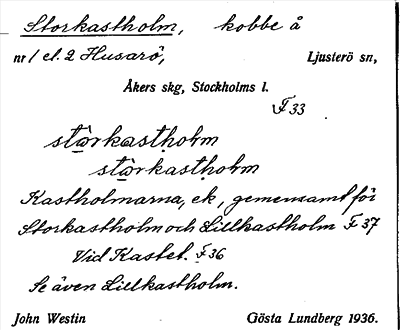 Storkastholm, kobbe å
nr 1 el. 2 Husarö, Ljusterö sn,
Åkers skg, Stockholms l.
F 33
stòrkastholm
stòrkastholm
Kastholmarna, ek, gemensamt för
Storkastholm och Lillkastholm F 37
Vid Kastet. F 36
Se även Lillkastholm.
John Westin Gösta Lundberg 1936.